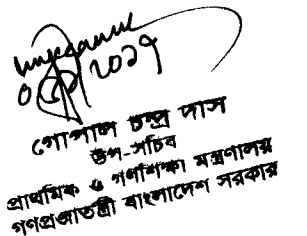 গোপাল চন্দ্র দাস
উপ-সচিব
প্রাথমিক ও গণশিক্ষা মন্ত্রণালয়
গণপ্রজাতন্ত্রী বাংলাদেশ সরকার